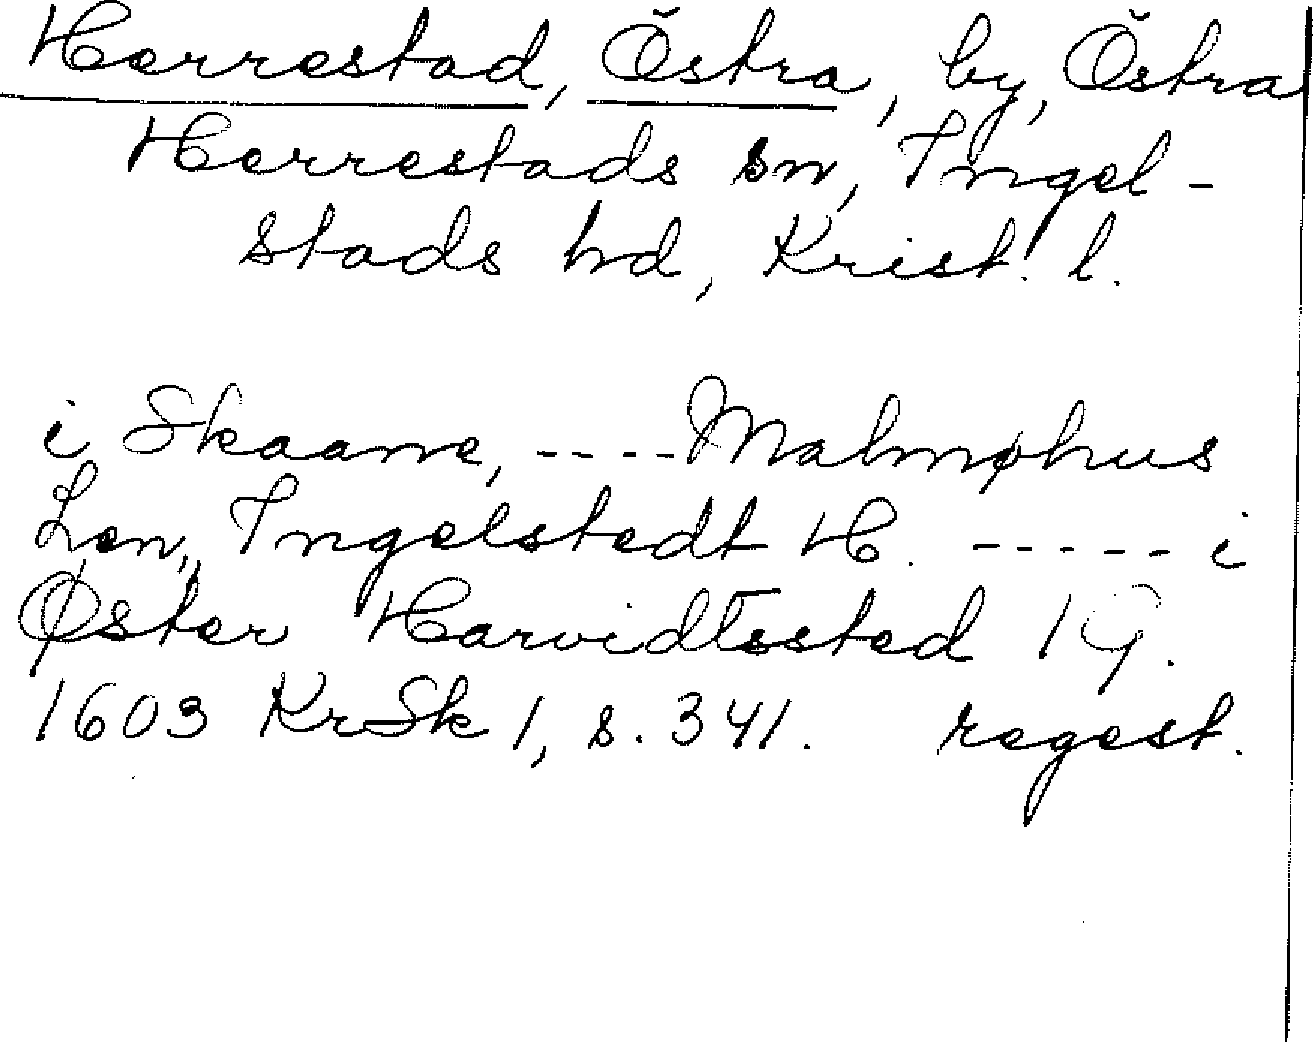 Herrestad, Östra, by, Östra
Herrestads sn, Ingel-
stads hd, Krist. l.
i Skaane, ---- Malmøhus
Len, Ingelstedt H. ----- i
Øster Harvidtssted 1 G.
1603 KrSk 1, s. 341. regest.